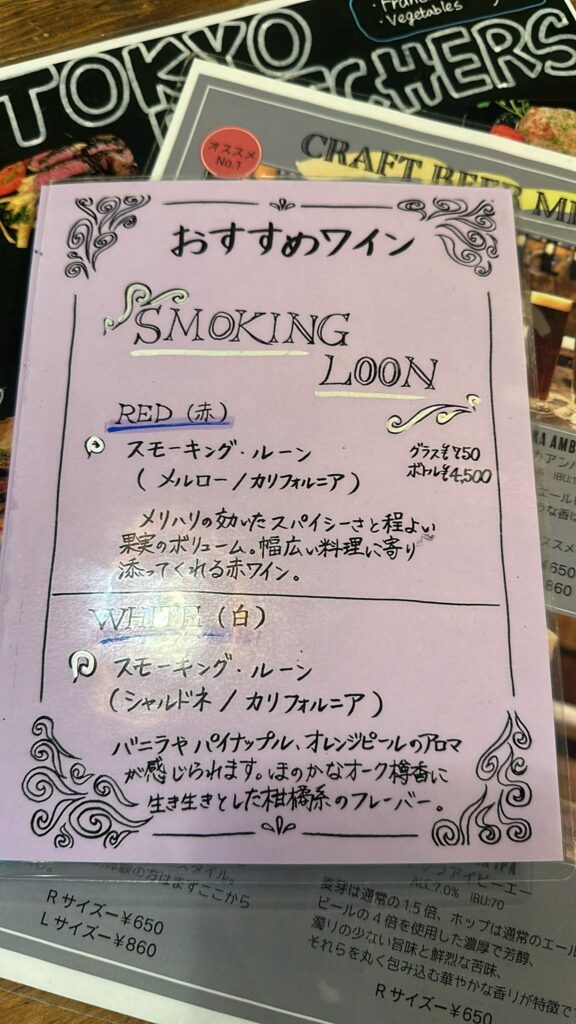 • Vegetables
TOKYO
オススメ
No.1
CRAFT BEER
おすすめワイン
SMOKING
LOON
RED (赤)
スモーキング・ルーン
グラス¥750
(メルロー/カリフォルニア)
ボトル¥4,500
メリハリの効いたスパイシーさと程よい
果実のボリューム。幅広い料理に寄り
添ってくれる赤ワイン。
WHITE (白)
スモーキング・ルーン
(シャルドネ/カリフォルニア)
バニラやパイナップル、オレンジピールのアロマ
が感じられます。ほのかなオーク樽香に
生き生きとした柑橘系のフレーバー。
の方はまずここから
Rサイズー¥650
Lサイズー¥860
¥650
860
ALC7.0% IBU:70
麦芽は通常の1.5倍、ホップは通常のエール
ビールの4倍を使用した濃厚で芳醇、
濁りの少ない旨味と鮮烈な苦味、
それらを丸く包み込む華やかな香りが特徴で
Rサイズー¥650